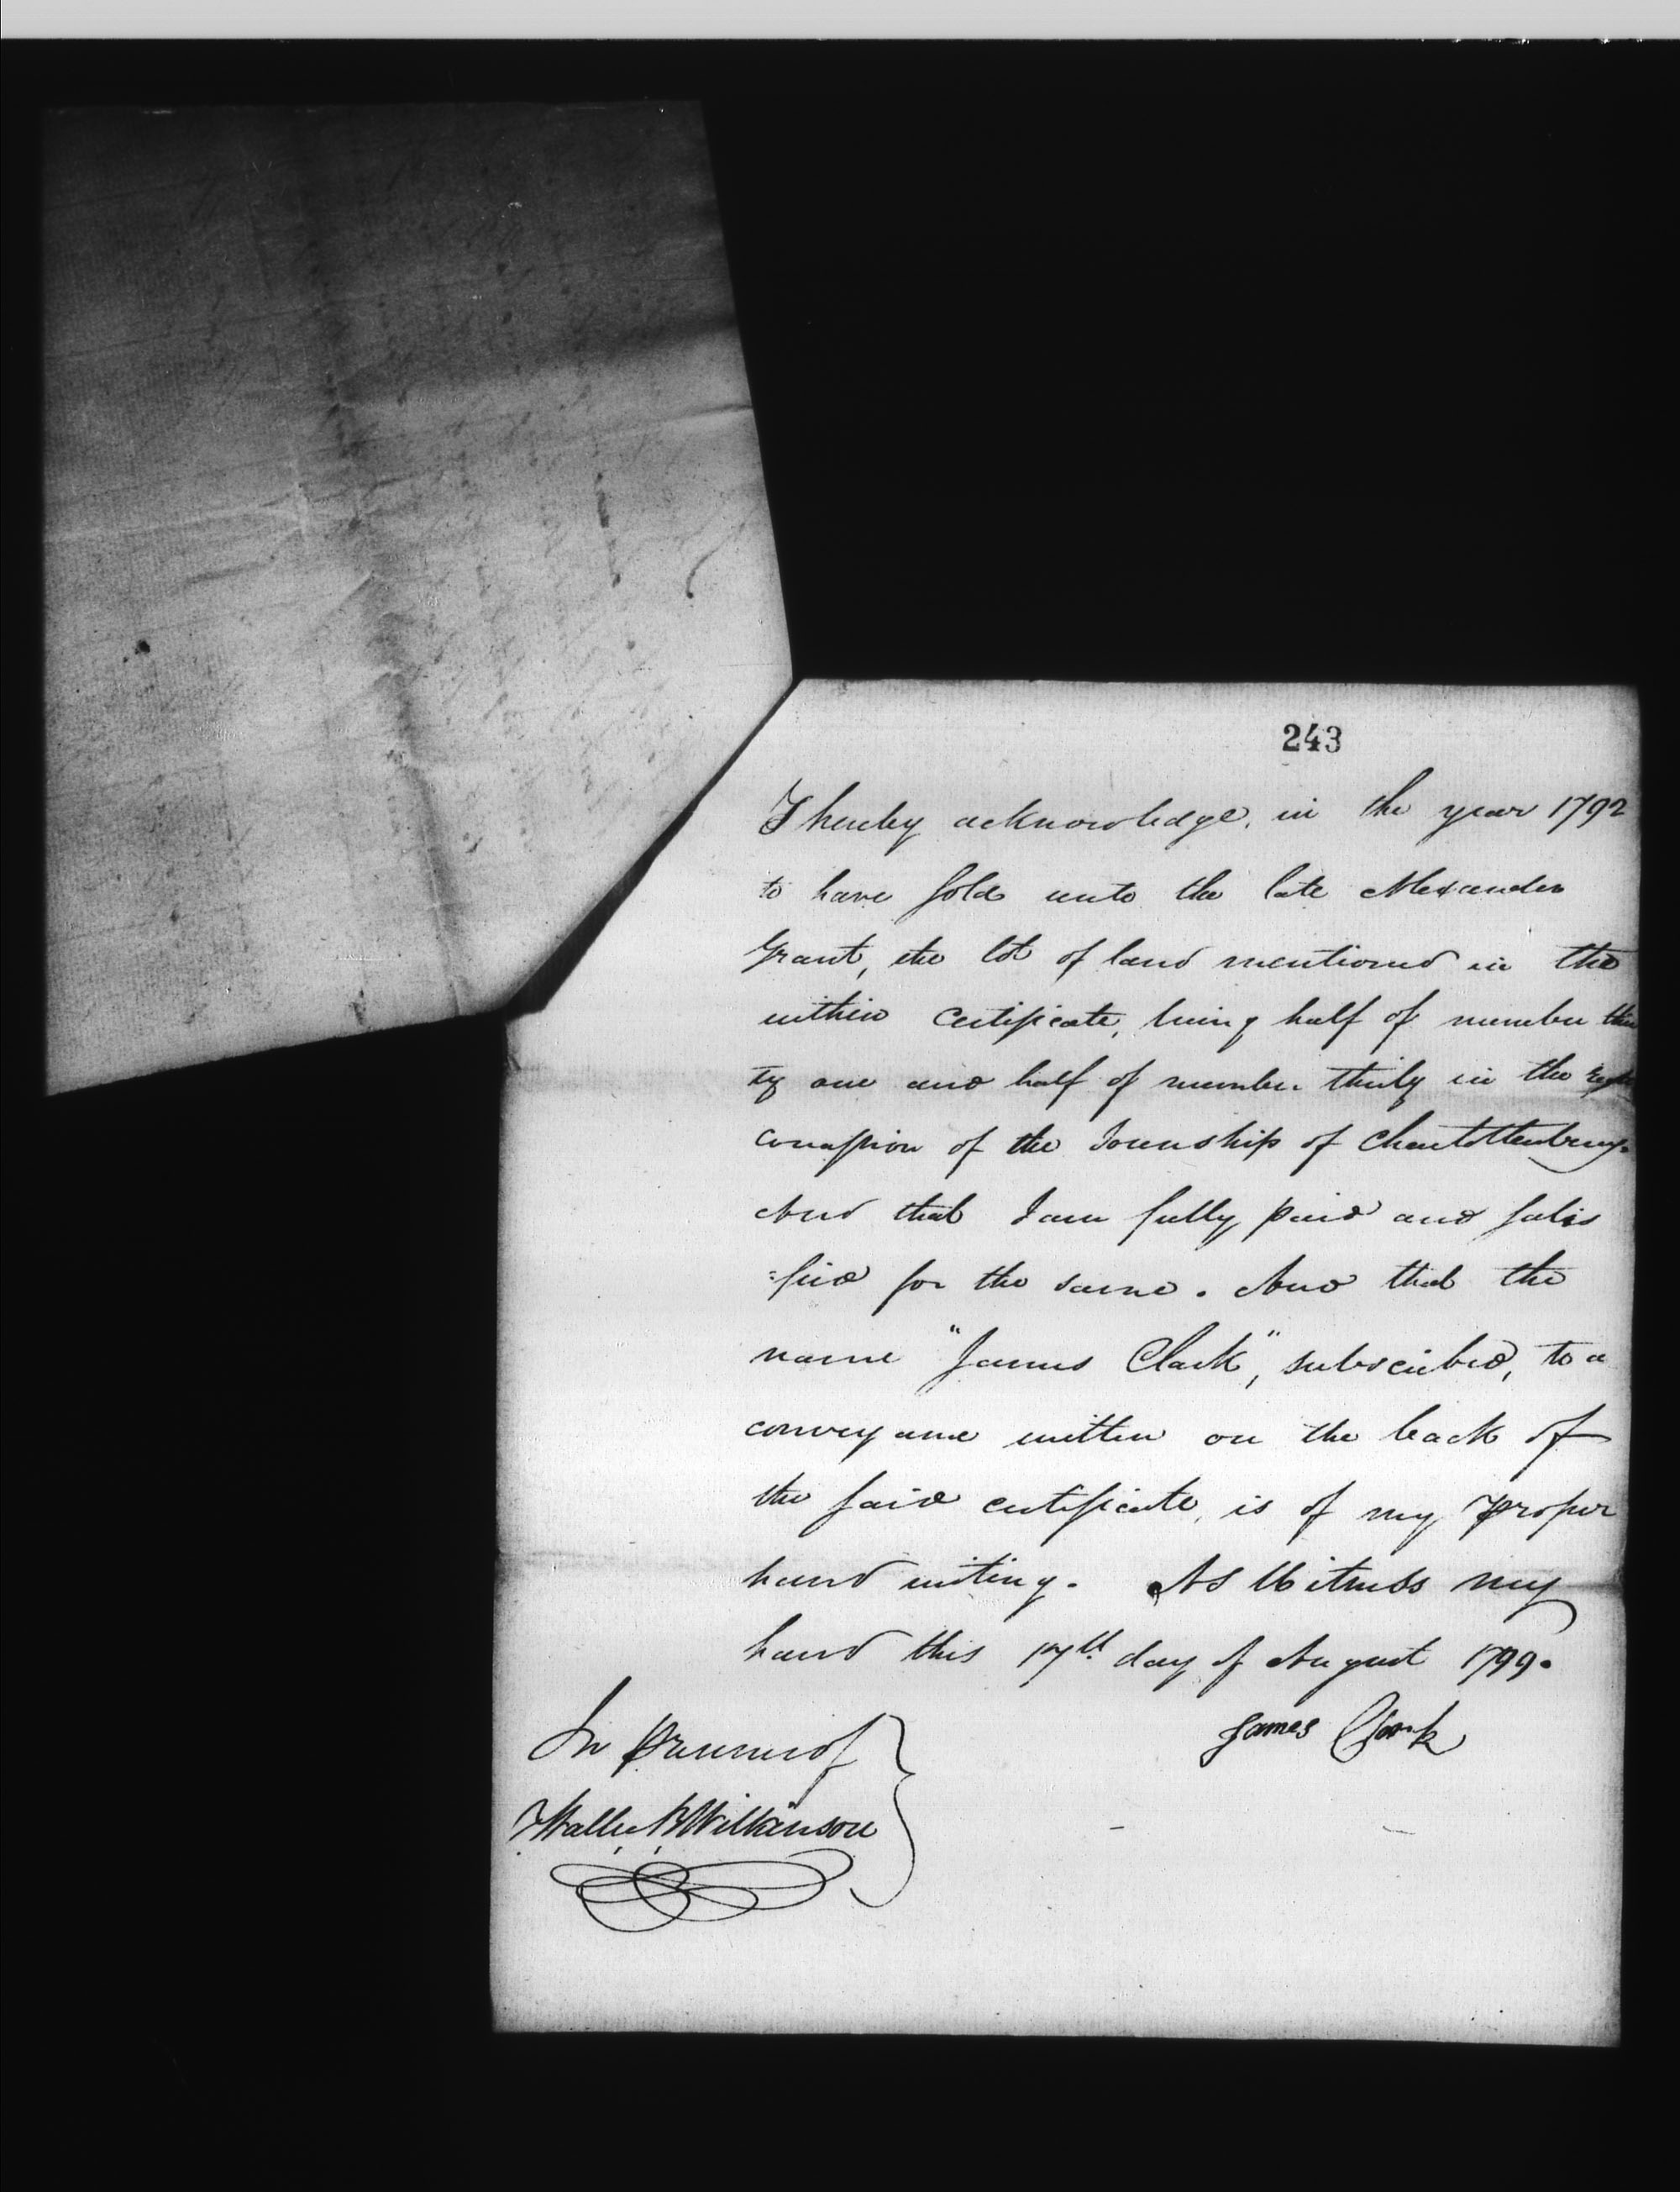 243
I hereby acknowledge, in the year 1792
to have sold unto the late Alexander
Grant, the lot of land mentioned in the
within certificate, being half of number thir
ty one and half of number thirty in the
concession of the Township of Charlottenburg.
And that I am fully paid and satis
=fied for the same. And that the
name "James Clark", subscribed, to a
conveyance written on the back of
the said certificate, is of my proper
hand writing. As Witness my
hand this 17th day of August 1799.
James Clark
In presence of
Walter B Wilkinson